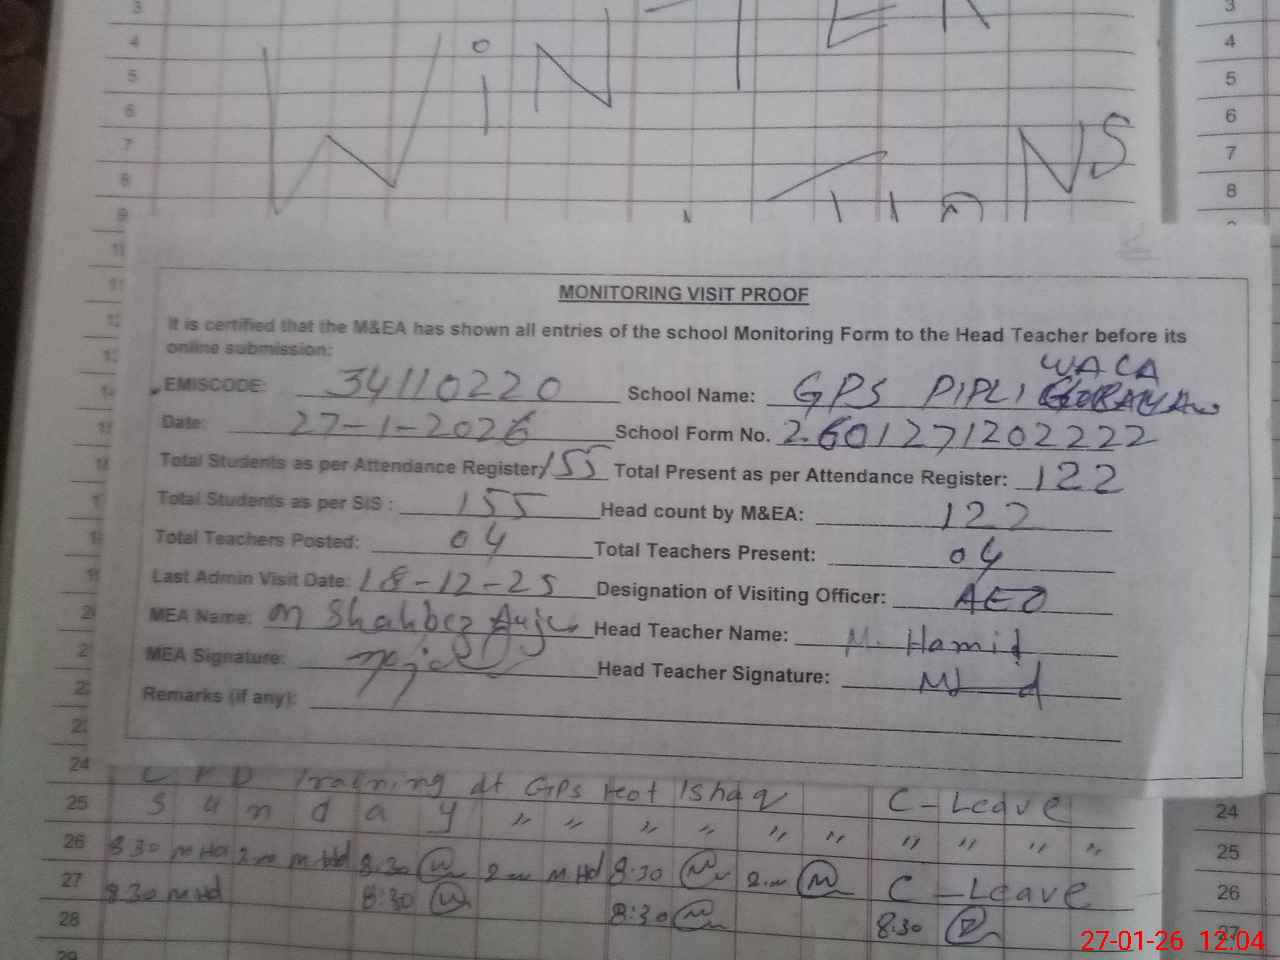 WiNTER
NS
MONITORING VISIT PROOF
It is certified that the M&EA has shown all entries of the school Monitoring Form to the Head Teacher before its
online submission:
EMISCODE: 34110220 School Name: GPS PIPLI WACA
Date: 27-1-2026 School Form No. 2.601271202222
Total Students as per Attendance Register: 155 Total Present as per Attendance Register: 122
Total Students as per SIS : 155 Head count by M&EA: 122
Total Teachers Posted: 04 Total Teachers Present: 04
Last Admin Visit Date: 18-12-25 Designation of Visiting Officer: AEO
MEA Name: M Shahbaz Head Teacher Name: M. Hamid
MEA Signature: Head Teacher Signature:
Remarks (if any):
24 CPD Training at GPS Heot Ishaq C-Leave
25 S u n d a y " " " " " " " " " "
26 8 30 M Hd 2 M Hd 8:30 2 M Hd 8:30 2 C-Leave
27 8 30 M Hd 8:30 8:30 8:30
28
29
3
4
5
6
7
8
24
25
26
27
27-01-26 12:04